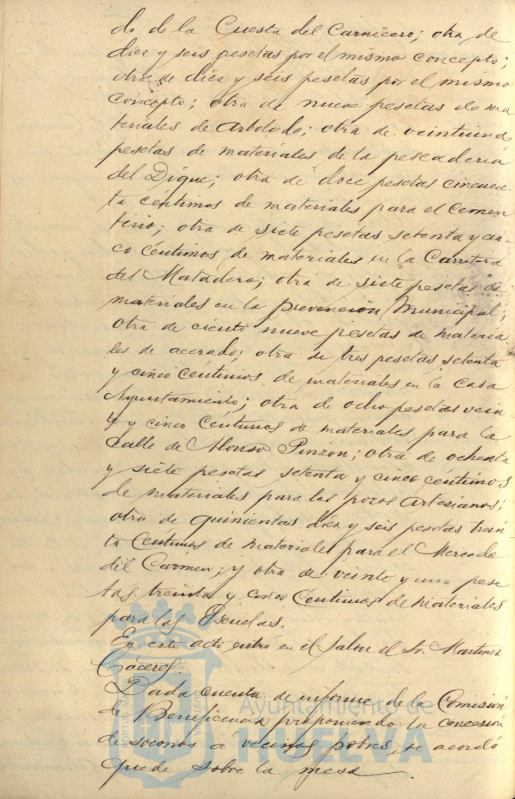 do de la Cuesta del Carnicero; otra de
diez y seis pesetas por el mismo concepto;
otra de diez y seis pesetas por el mismo
concepto; otra de nueve pesetas de ma
teriales de Arbolado; otra de veintiuna
pesetas de materiales de la pescaderia
del Dique; otra de doce pesetas cincuen
ta centimos de materiales para el Cemen
terio; otra de siete pesetas setenta y cin
co céntimos de materiales en la Carretera
del Matadero; otra de siete pesetas de
materiales en la prevención Municipal;
otra de ciento nueve pesetas de materia
les de acerado; otra de tres pesetas setenta
y cinco centimos de materiales en la Casa
Ayuntamiento; otra de ocho pesetas vein
te y cinco céntimos de materiales para la
calle de Alonso Pinzon; otra de ochenta
y siete pesetas setenta y cinco céntimos
de materiales para los pozos Artesianos;
otra de quinientas diez y seis pesetas trein
ta centimos de materiales para el Mercado
del Carmen; y otra de veinte y una pese
tas treinta y cinco centimos de materiales
para las Escuelas.
En este acto entró en el Salon el Sr. Martinez
Cáceres.
Dada cuenta de informe de la Comisión
de Beneficencia proponiendo la concesión
de socorros a vecinos pobres, se acordó
quede sobre la mesa.
Ayuntamiento de
HUELVA